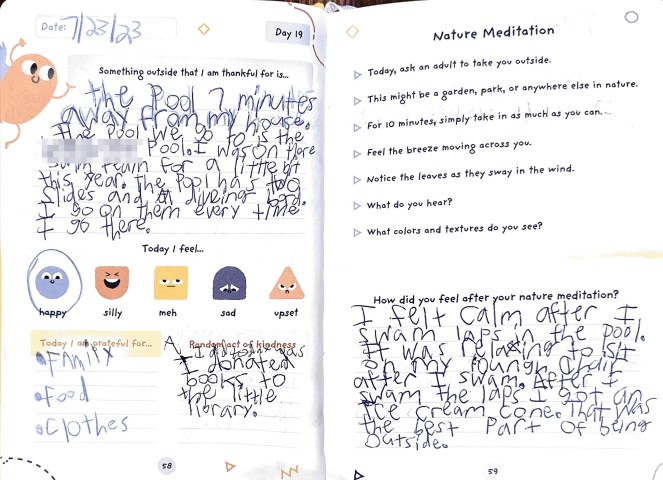 Date: 7/23/23
Day 19
Something outside that I am thankful for is...
the Pool 7 minutes
away from my house.
The Pool we go to is the
Pool. I was on there
swim team for a little bit
this year. The Pool has two
slides and a diveing bord.
I go on them every time
I go there.
Today I feel...
happy silly meh sad upset
Today I am grateful for...
FAMILY
Food
Clothes
Random act of kindness
A
was
I donated
books to
the little
library.
58
Nature Meditation
Today, ask an adult to take you outside.
This might be a garden, park, or anywhere else in nature.
For 10 minutes, simply take in as much as you can...
Feel the breeze moving across you.
Notice the leaves as they sway in the wind.
What do you hear?
What colors and textures do you see?
How did you feel after your nature meditation?
I felt calm after I
swam laps in the pool.
It was relaxing to sit
on my loung chair
after I swam. After I
swam the laps I got an
Ice cream cone. That was
the best part of being
outside.
59